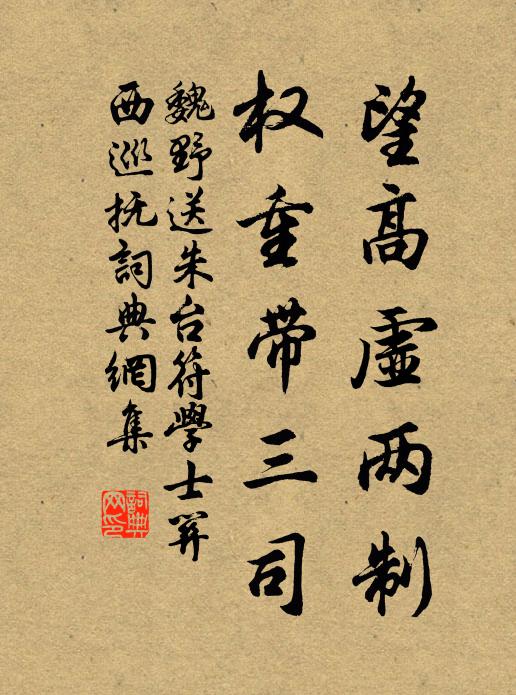 望高虚两制
权重带三司
魏野送朱台符學士罢
西巡抚詞典網集
詞典網印